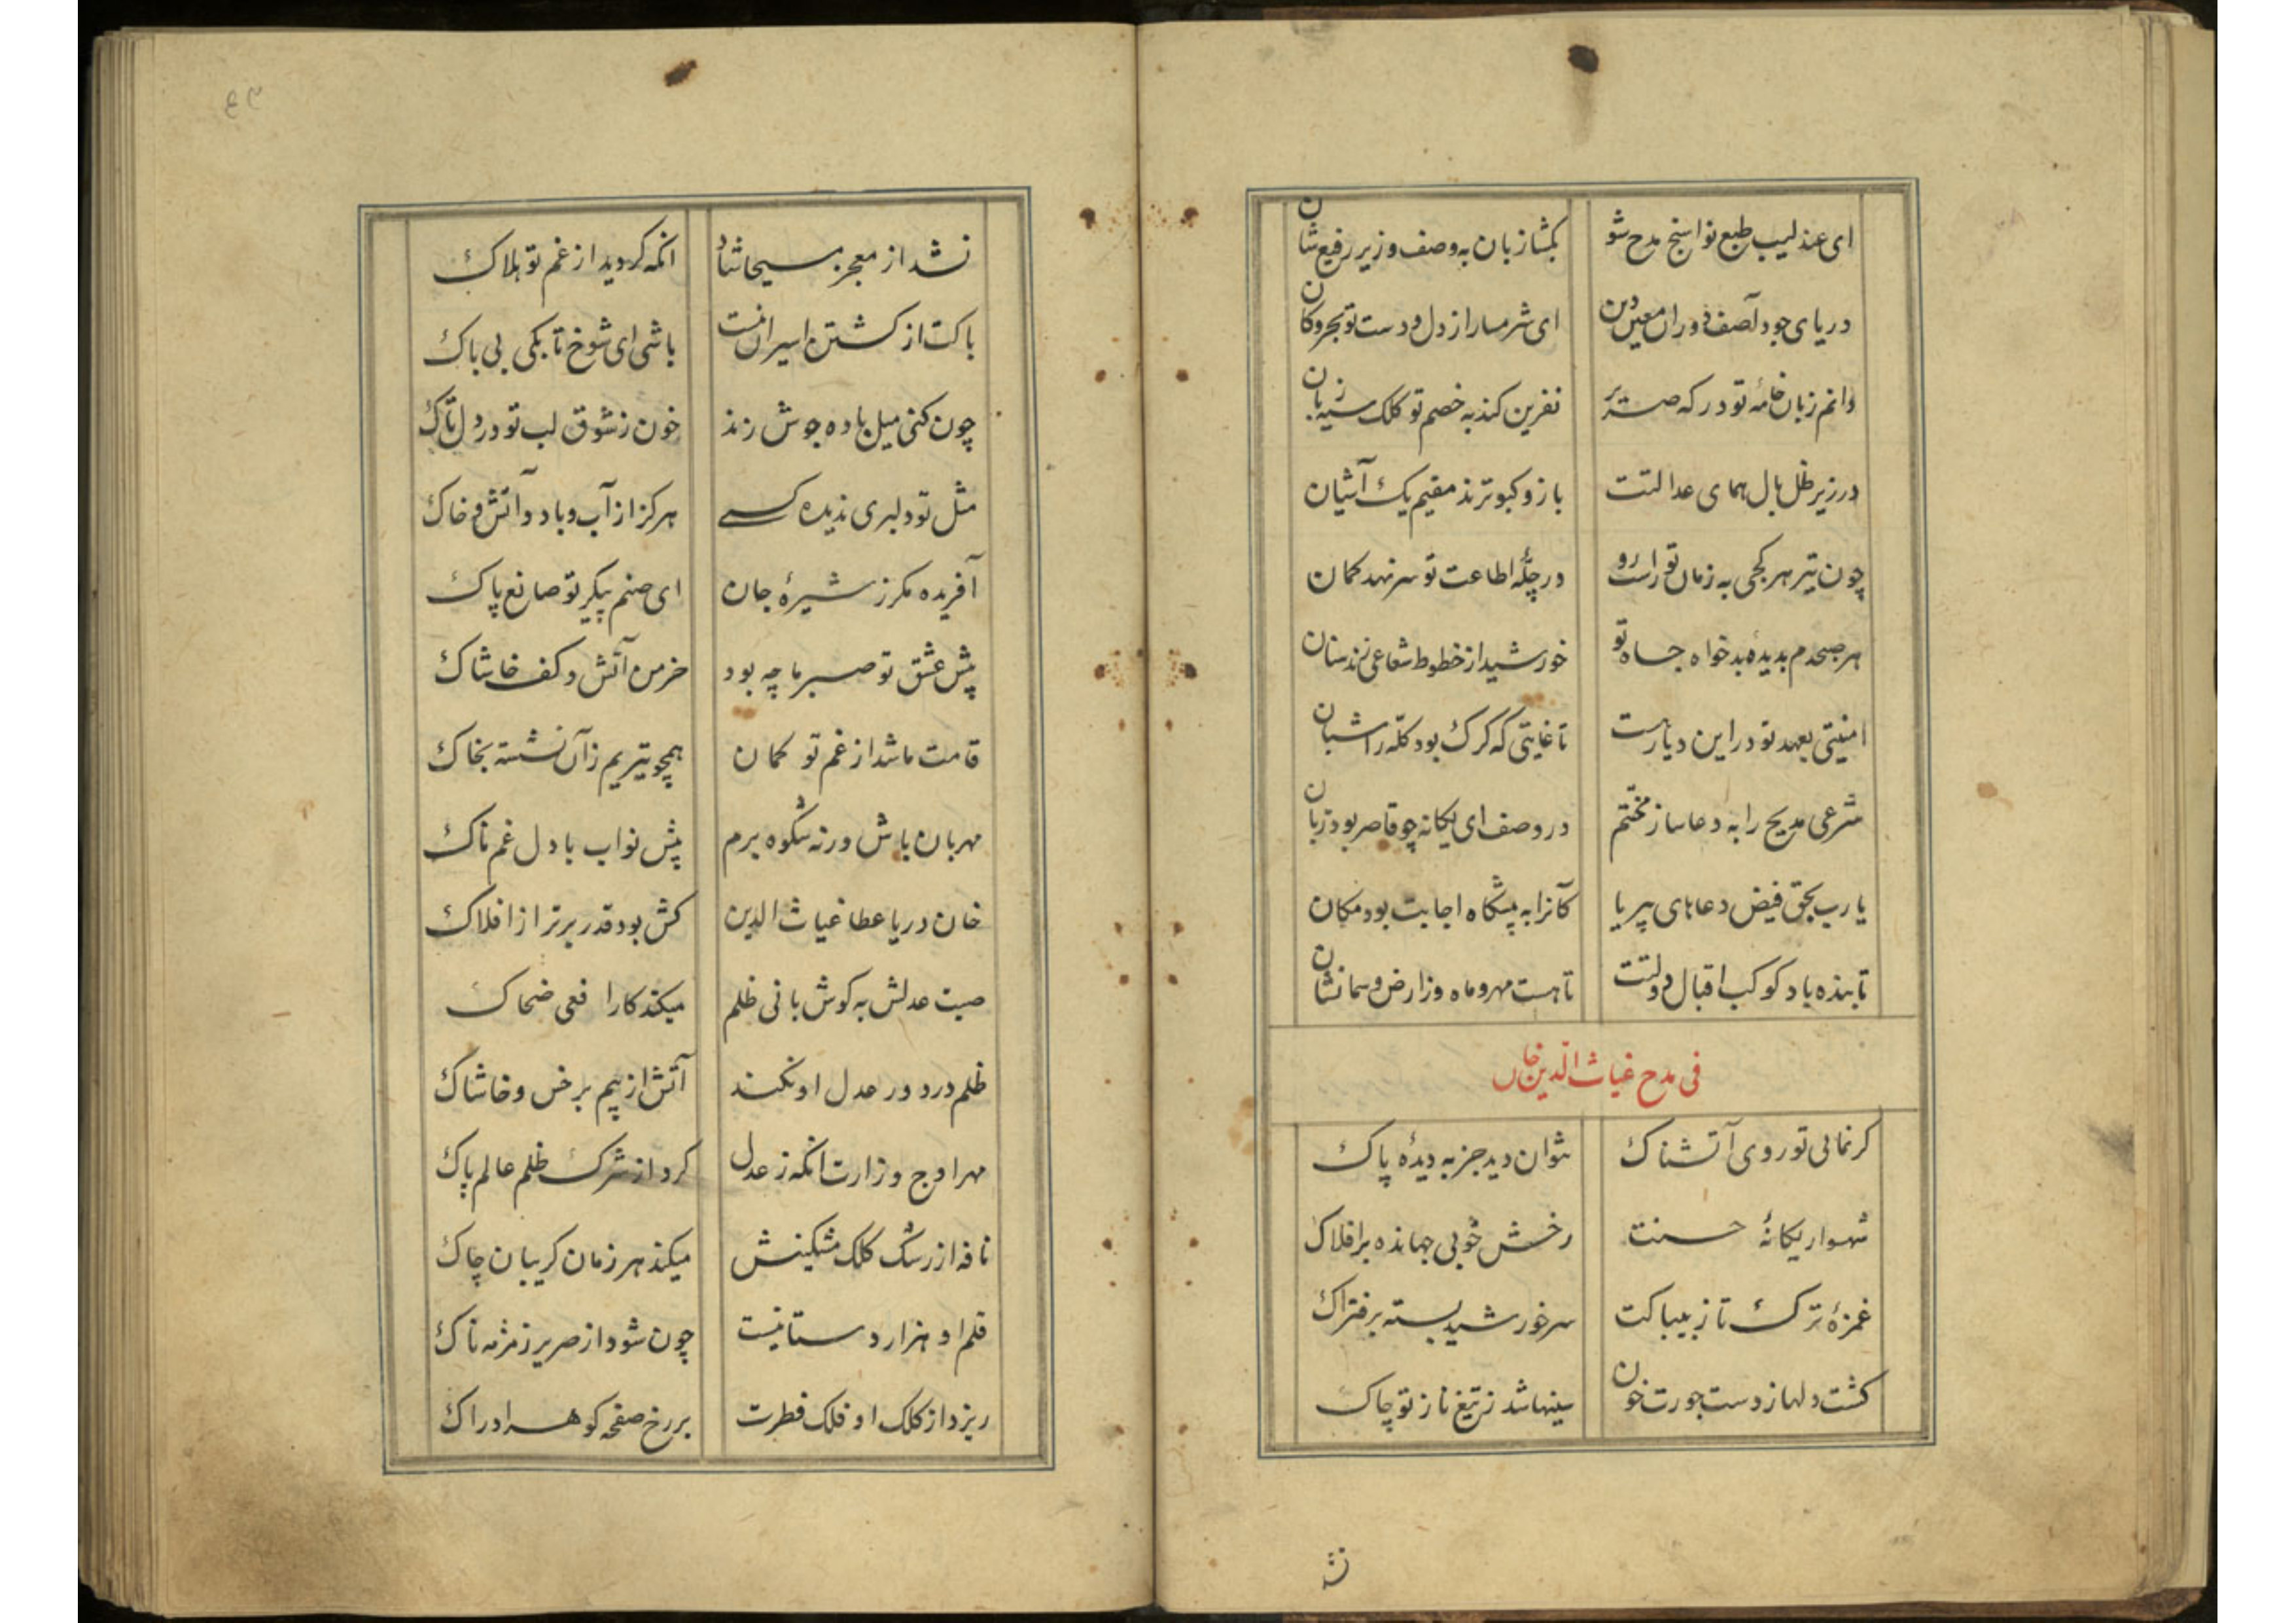 ای عندلیب طبع نواسنج مدح شو بکشا زبان به وصف وزیر رفیع شان
دریای جود آصف دوران معین دین ای شرمسار از دل و دست تو بحر و کان
دانم زبان خامه تو در که صریر نفرین کند به خصم تو کلک سیه زبان
در زیر ظل بال همای عدالتت باز و کبوترند مقیم یک آشیان
چون تیر هر کجی به زمان تو راست رو در چلّه اطاعت تو سر نهد کمان
هر صبحدم بدیدهٔ بدخواه جاه تو خورشید از خطوط شعاعی زند سنان
امنیتی بعهد تو در این دیار هست تا غایتی که کرک بود کلّه را شبان
شرعی مدیح را به دعا ساز مختتم در وصف ای یکانه چو قاصر بود زبان
یا رب بحق فیض دعاهای بیریا کانرا به پیشکاه اجابت بود مکان
تابنده باد کوکب اقبال و دولتت تا هست مهر و ماه وز ارض و سما نشان
فی مدح غیاث الدین خان
کر نمائی تو روی آتشناک نتوان دید جز به دیدهٔ پاک
شهسوار یکانهٔ حسنت رخش خوبی جهانده بر افلاک
غمزهٔ ترک تاز بیباکت سر خورشید بسته بر فتراک
کشت دلها ز دست جورت خون سینها شد ز تیغ ناز تو چاک
نشد
نشد از معجز مسیحا شاد انکه کردید از غم تو هلاک
باکت از کشتن اسیران نیست باشی ای شوخ تا بکی بی باک
چون کنی میل باده جوش زند خون ز شوق لب تو در دل تاک
مثل تو دلبری ندیده کسے هرکز از آب و باد و آتش و خاک
آفریده مکر ز شیرهٔ جان ای صنم پیکر تو صانع پاک
پیش عشق تو صبر ما چه بود خرمن آتش و کف خاشاک
قامت ما شد از غم تو کمان همچو تیریم زآن نشسته بخاک
مهربان باش ورنه شکوه برم پیش نواب با دل غم ناک
خان دریا عطا غیاث الدین کش بود قدر برتر از افلاک
صیت عدلش به کوش بانی ظلم میکند کار افعی ضحاک
ظلم در دور عدل او نکند آتش از بیم بر خس و خاشاک
مهر اوج وزارت انکه ز عدل کرد از شرک ظلم عالم پاک
نافه از رشک کلک مشکینش میکند هر زمان کریبان چاک
قلم او هزار دستانیست چون شود از صریر زمزمه ناک
ریزد از کلک او فلک فطرت بر رخ صفحه کوهر ادراک